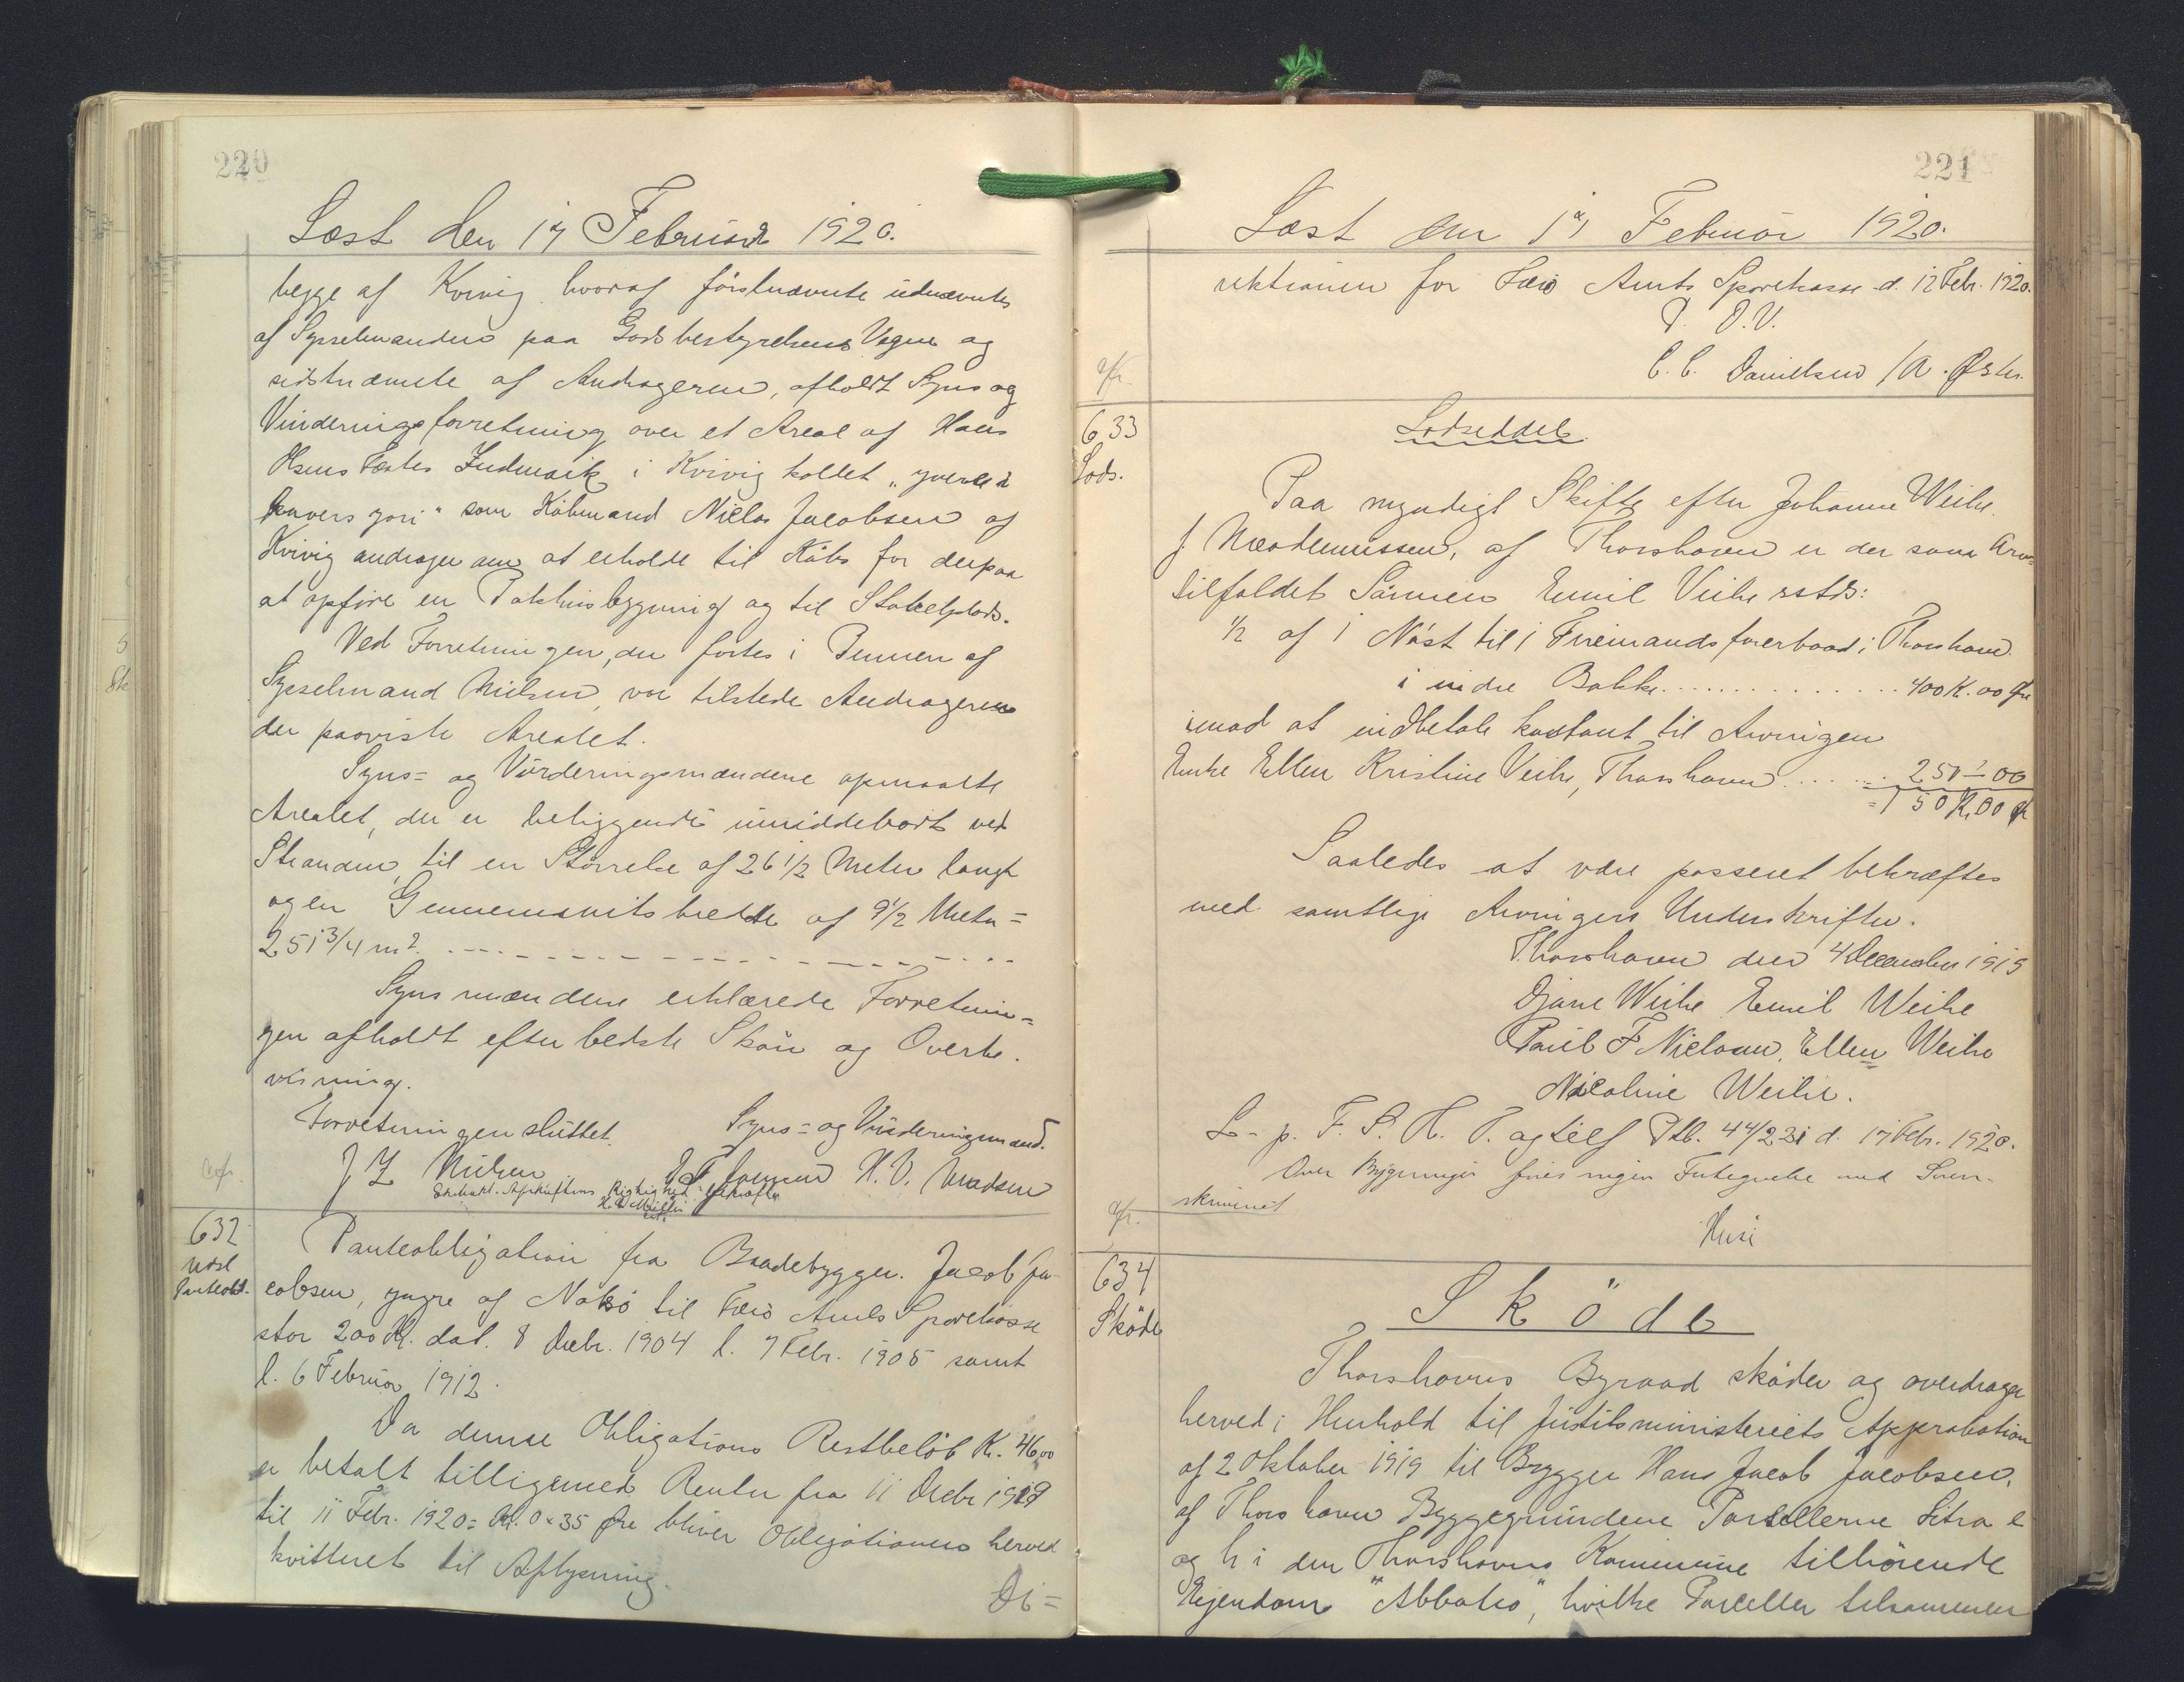 220
Læst den 17 Februar 1920.
begge af Kvivig hvoraf förstnævnte udnævntes
af Sysselmanden paa Godsbestyrelsens Vegne og
sidstnævnte af Andrageren, afholdt Syns og
Vurderingsforretning over et Areal af Hans
Olsens Fæstes Indmark i Kvivig kaldet
som Köbmand Niclas Jacobsen af
Kvivig andrager om at erholde til Köbs for derpaa
at opföre en Pakhusbygning og til Stakkelplads.
Ved Forretningen, der førtes i Pennen af
Sysselmand Nielsen, var tilstede Andrageren
der paaviste Arealet.
Syns= og Vurderingsmændene opmaalte
Arealet, der er beliggende umiddelbart ved
Stranden, til en Størrelse af 26 1/2 Meter langt
og en Gennemsnitsbredde af 9 1/2 Meter =
251 3/4 m².
Synsmændene erklærede Forretnin=
gen afholdt efter bedste Skön og Overbe-
visning.
Forretningen sluttet. Syns= og Vurderingsmænd.
J Z Nielsen Joensen H. V. Madsen
Afskriftens Rigtighed bekræftes
cfr.
632
Udsl
Panteobl.
Panteobligation fra Baadebygger Jacob Ja-
cobsen, yngre af Nolsö til Færö Amts Sparekasse
stor 200 Kr. dat. 8 Decbr. 1904 l. 7 Febr. 1905 samt
l. 6 Februar 1912.
Da denne Obligations Restbelöb Kr. 46,00
er betalt tilligemed Renter fra 11 Decbr 1919
til 11 Febr. 1920 = Kr. 0 = 35 Øre bliver Obligationen herved
kvitteret til Aflysning.
Di=
5
Sk
221
Læst den 17 Februar 1920.
rektionen for Færö Amts Sparekasse d. 12 Febr. 1920.
P. D. V.
C. C. Danielsen /A. Øster.
cfr.
633
Lods.
Lodseddel.
Paa myndigt Skifte efter Johanne Weihe
f. af Thorshavn er der som Arv
tilfaldet Sönnen Emil Weihe
1/2 af 1 Nöst til 1 Firemandsfarerbaad i Thorshavn
i indre Bakke............. 400 K. 00 Øre
imod at indbetale kontant til Arvingen
Enke Ellen Kristine Weihe, Thorshavn...... 250 - 00
= 150 K. 00 Ø
Saaledes at være passeret bekræftes
med samtlige Arvingers Underskrifter.
Thorshavn den 4 December 1919
Djane Weihe Emil Weihe
Paul F Nielsen, Ellen Weihe
Nicoline Weihe.
L. p. F. S. H. T. og Ptb. 44/231 d. 17 Febr. 1920.
Over Bygningen fines ingen
skriveriet
Husi
cfr.
634
Sköde
Sköde
Thorshavns Byraad sköder og overdrager
herved i Henhold til Justitsministeriets Approbation
af 2 Oktober 1919 til Brygger Hans Jacob Jacobsen,
af Thorshavn Byggegrundene Parsellerne Litra e
og h i den Thorshavns Kommune tilhörende
Ejendom "Abbatio", hvilke Parceller tilsammen